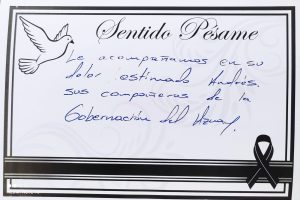 Sentido Pésame
Le acompañamos en su
dolor estimado Andrés.
sus compañeros de la
Gobernación del Azuay.